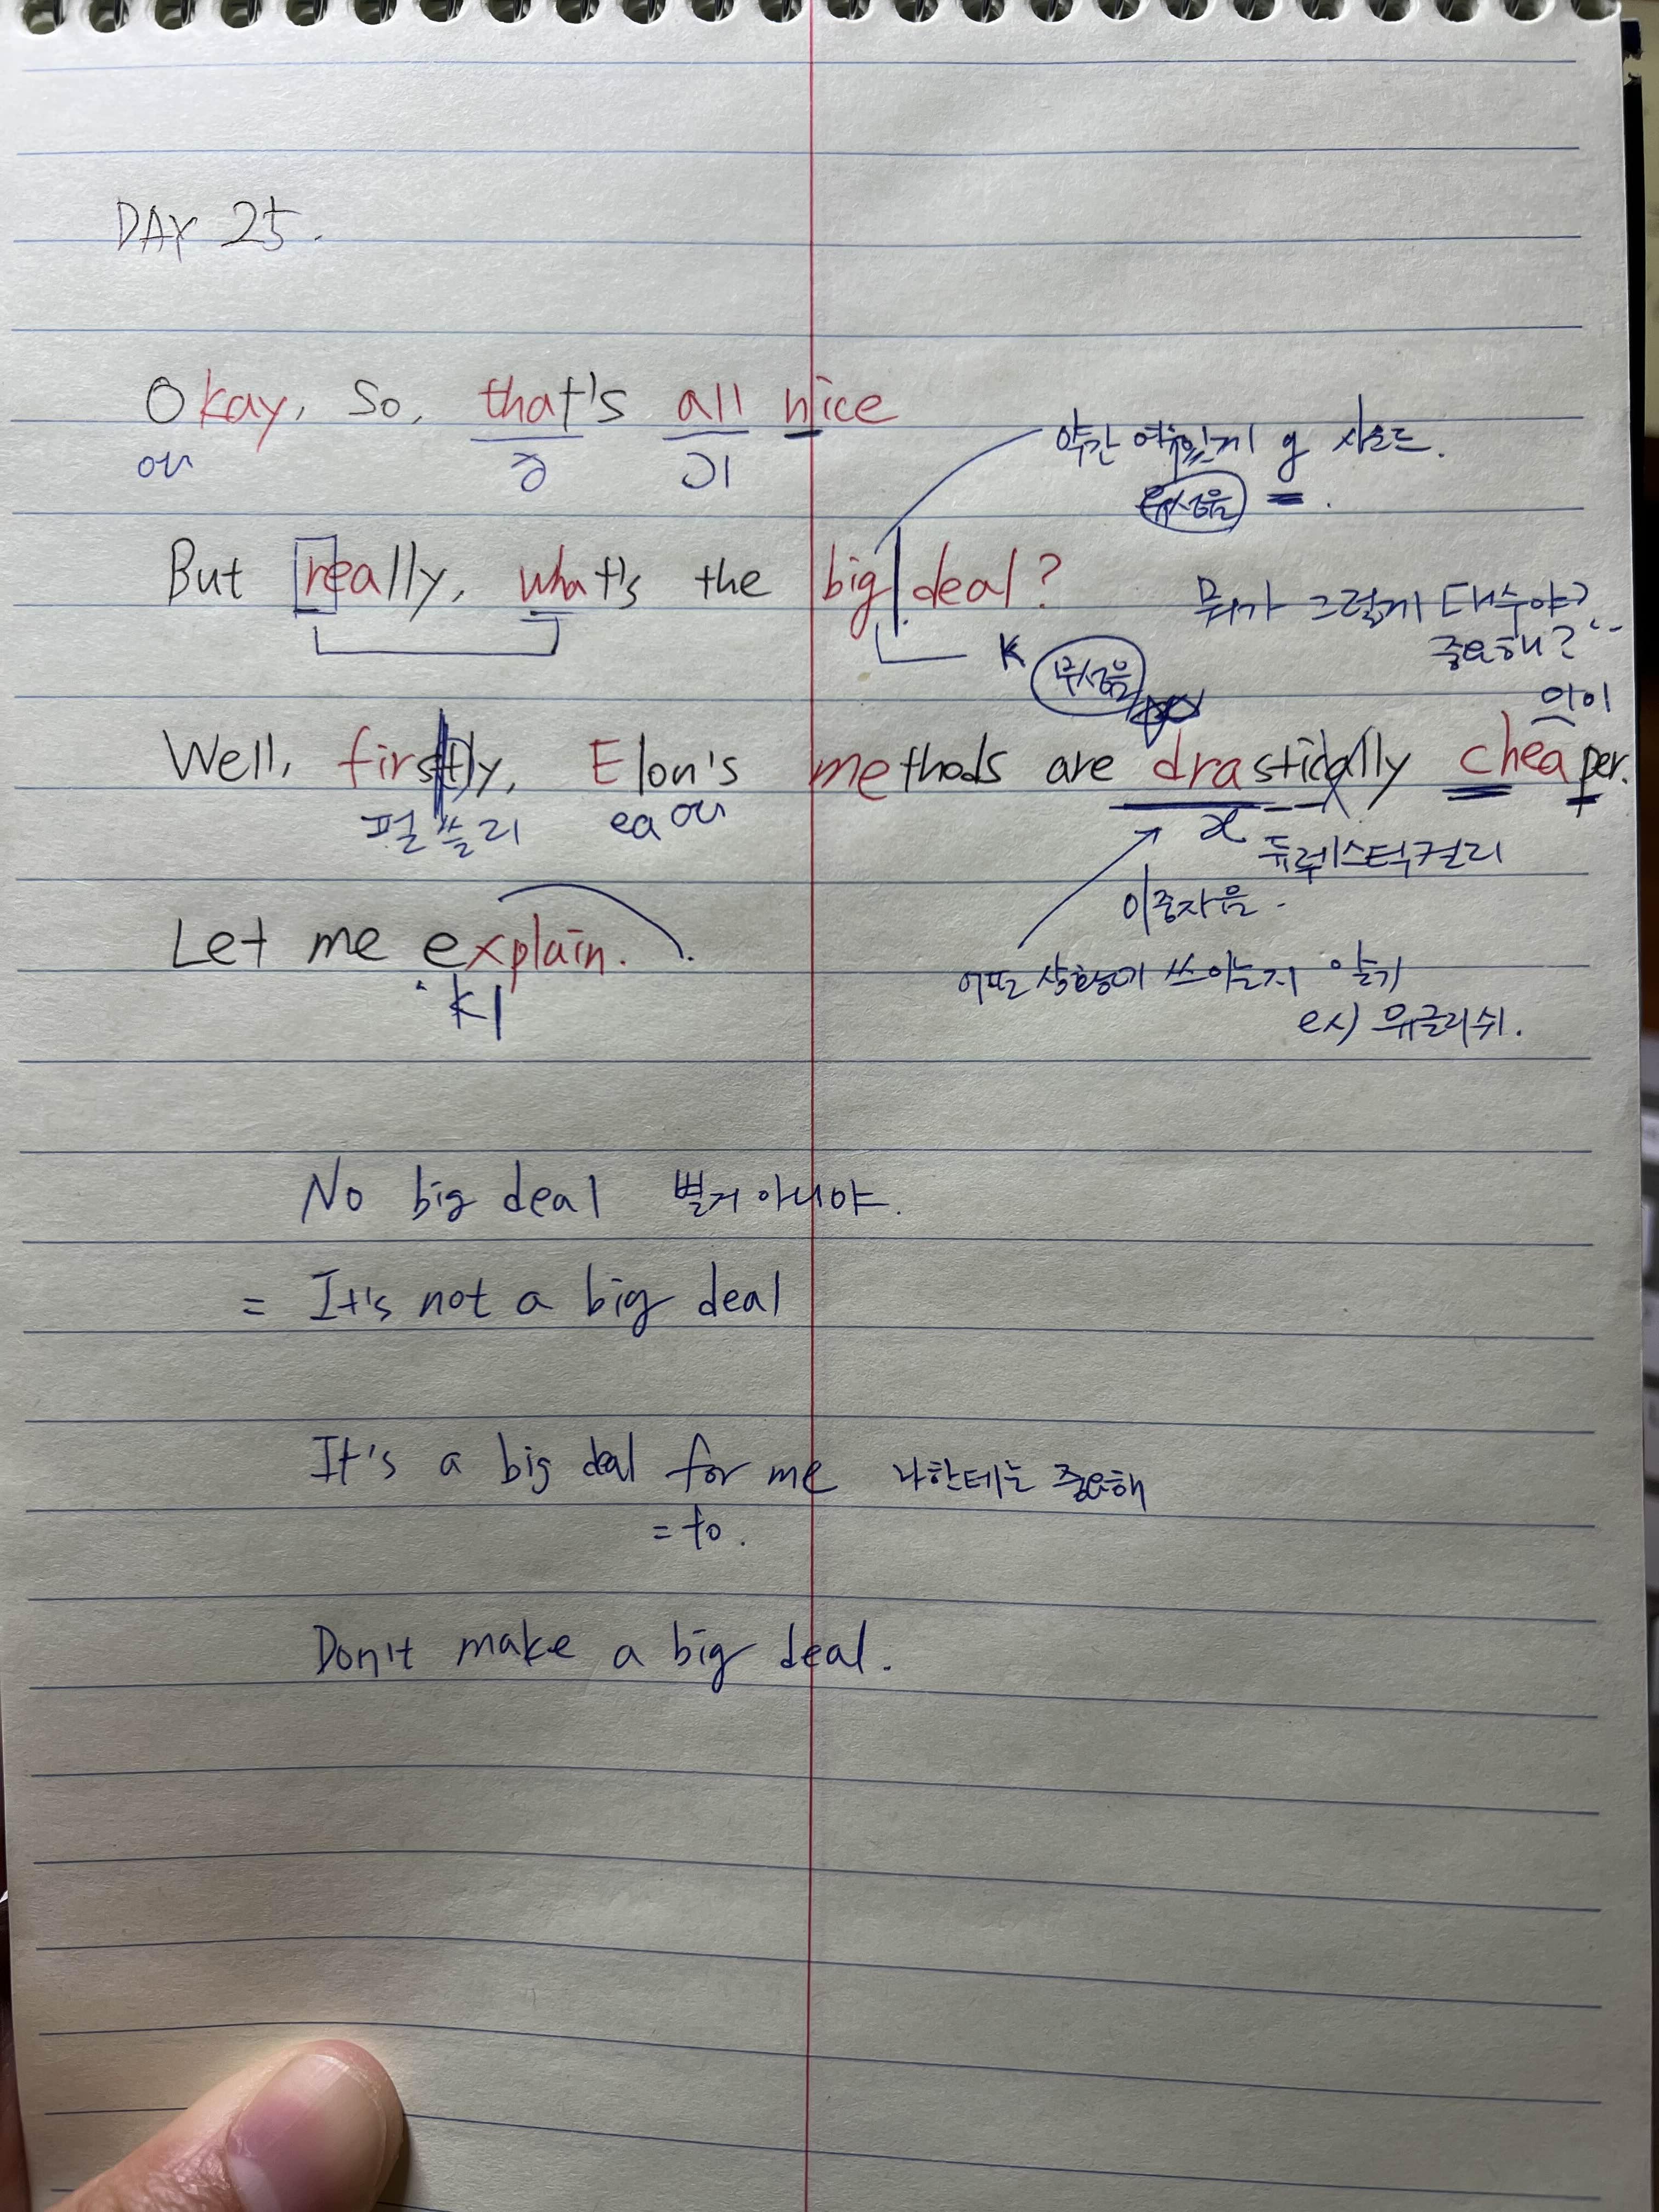 DAY 25.
Okay, so, that's all nice
ou
약간 여유있게 g 사운드.
유성음
But really, what's the big deal?
뭐가 그렇게 대수야?
중요해?
K 무성음
이이
Well, firstly, Elon's methods are drastically cheaper.
펄쓸리 ea ou
x 듀뤠스틱컬리
이중자음.
Let me explain.
k
어떤 상황에 쓰이는지 알기
ex) 뮤글리쉬.
No big deal 별거 아니야.
= It's not a big deal
It's a big deal for me 나한테는 중요해
= to.
Don't make a big deal.